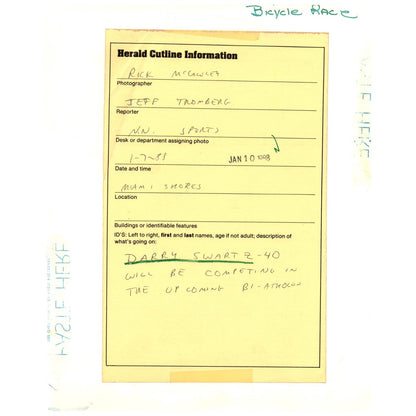 Bicycle Race
Herald Cutline Information
RICK McCAWLEY
Photographer
JEFF TROMBERG
Reporter
NN. SPORTS
Desk or department assigning photo
1-7-88 JAN 10 1988
Date and time
MIAMI SHORES
Location
Buildings or identifiable features
ID'S: Left to right, first and last names, age if not adult; description of
what's going on:
DARRY SWARTZ - 40
WILL BE COMPETING IN
THE UPCOMING BI-ATHOLON
PASTE HERE
PASTE HERE